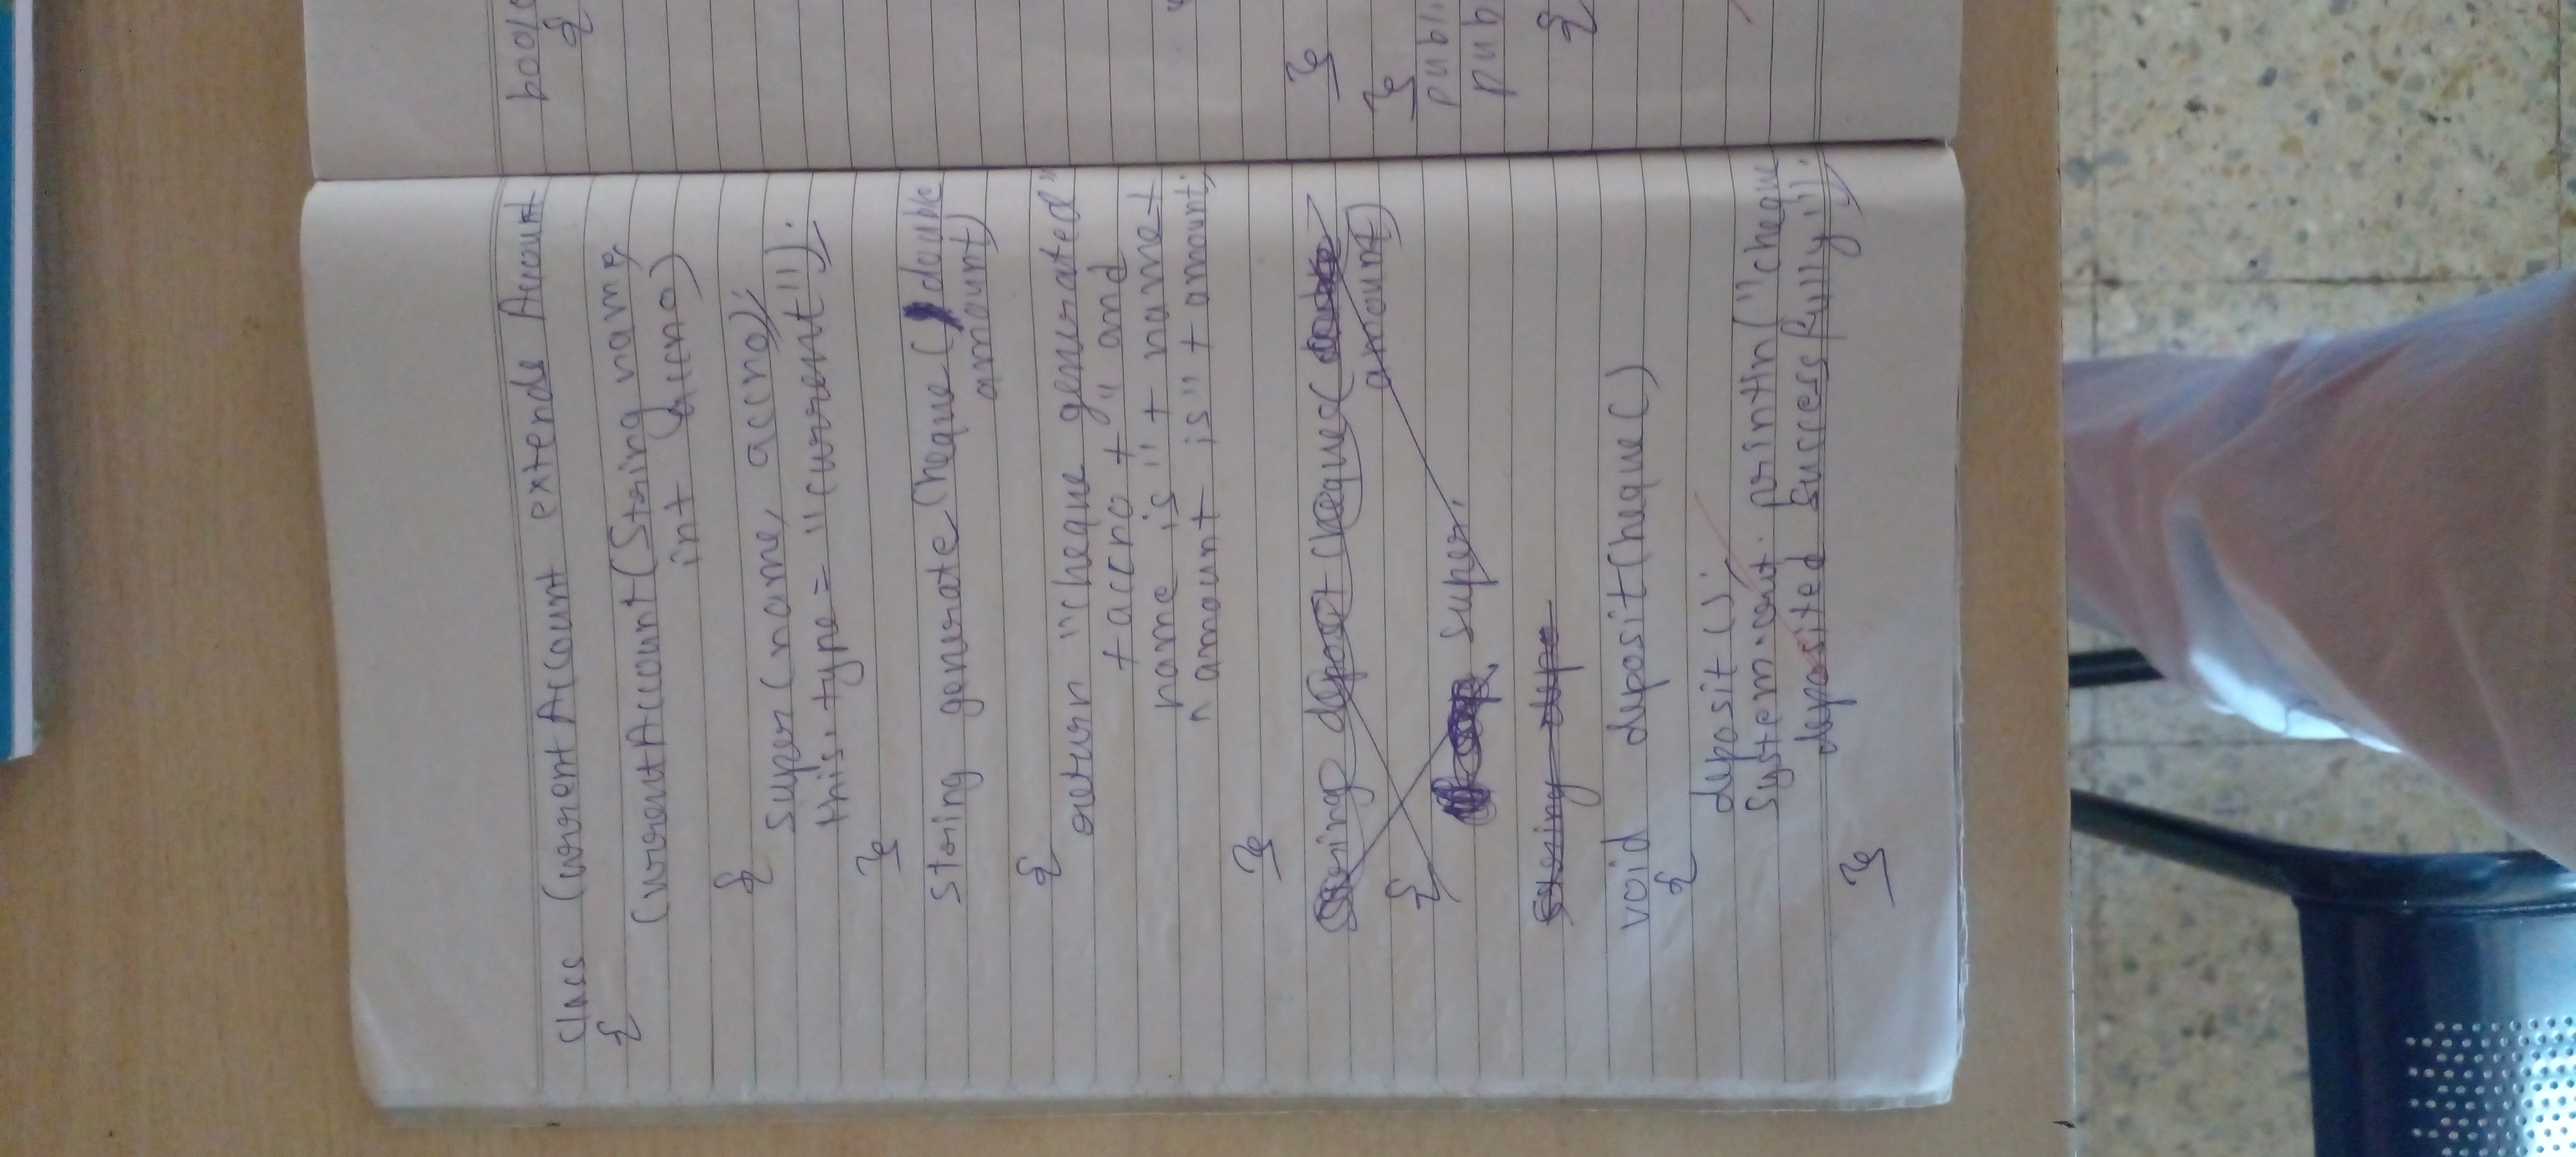 class CurrentAccount extends Account
{
CurrentAccount(String name,
int accno)
{
super(name, accno);
this.type = "current");
}
String generateCheque(double
amount)
{
return "cheque generated"
+ accno + " and
name is" + name +
" amount is" + amount;
}
String deposit cheque(
amount)
{
super.
String depo
void depositCheque()
{
deposit();
System.out.println("cheque
deposited successfully");
}
boole
{
}
}
publi
pub
{